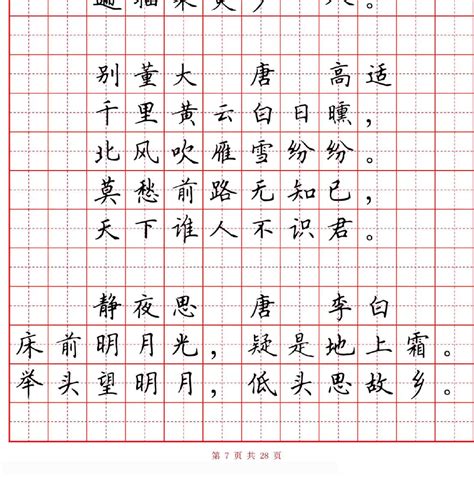 别董大 唐 高适
千里黄云白日曛，
北风吹雁雪纷纷。
莫愁前路无知己，
天下谁人不识君。
静夜思 唐 李白
床前明月光，疑是地上霜。
举头望明月，低头思故乡。
第 7 页 共 28 页